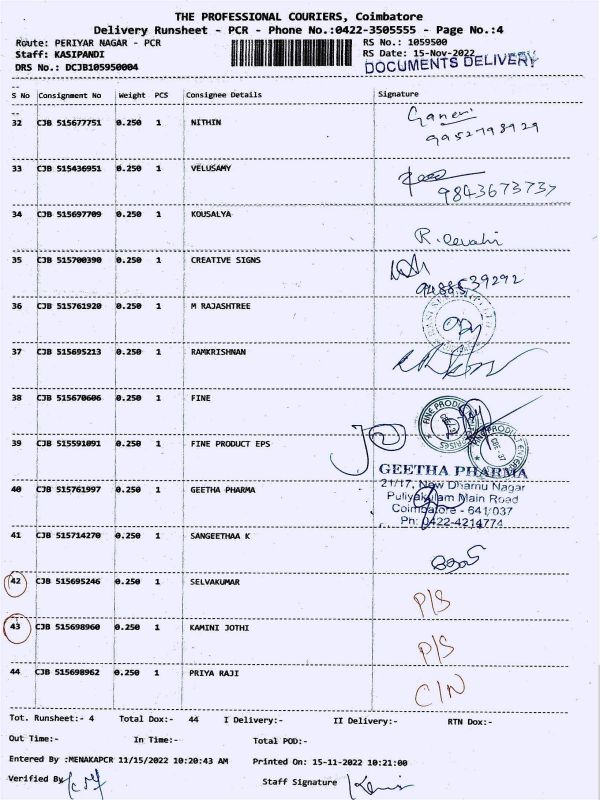 THE PROFESSIONAL COURIERS, Coimbatore
Delivery Runsheet - PCR - Phone No.:0422-3505555 - Page No.:4
Route: PERIYAR NAGAR - PCR
RS No.: 1059500
Staff: KASIPANDI
RS Date: 15-Nov-2022
DRS No.: DCJB105950004
DOCUMENTS DELIVERY
S No Consignment No Weight PCS Consignee Details Signature
32 CJB 515677751 0.250 1 NITHIN
9952798929
33 CJB 515436951 0.250 1 VELUSAMY
9843673737
34 CJB 515697709 0.250 1 KOUSALYA
R. Revathi
35 CJB 515700390 0.250 1 CREATIVE SIGNS
9488539292
36 CJB 515761920 0.250 1 M RAJASHTREE
37 CJB 515695213 0.250 1 RAMKRISHNAN
38 CJB 515670606 0.250 1 FINE
39 CJB 515591091 0.250 1 FINE PRODUCT EPS
GEETHA PHARMA
21/17, New Dhamu Nagar
40 CJB 515761997 0.250 1 GEETHA PHARMA
Puliyakulam Main Road
Coimbatore - 641 037
Ph: 0422-4214774
41 CJB 515714270 0.250 1 SANGEETHAA K
42 CJB 515695246 0.250 1 SELVAKUMAR
P/S
43 CJB 515698960 0.250 1 KAMINI JOTHI
P/S
44 CJB 515698962 0.250 1 PRIYA RAJI
C/N
Tot. Runsheet:- 4 Total Dox:- 44 I Delivery:- II Delivery:- RTN Dox:-
Out Time:- In Time:- Total POD:-
Entered By :MENAKAPCR 11/15/2022 10:20:43 AM Printed On: 15-11-2022 10:21:00
Verified By
Staff Signature